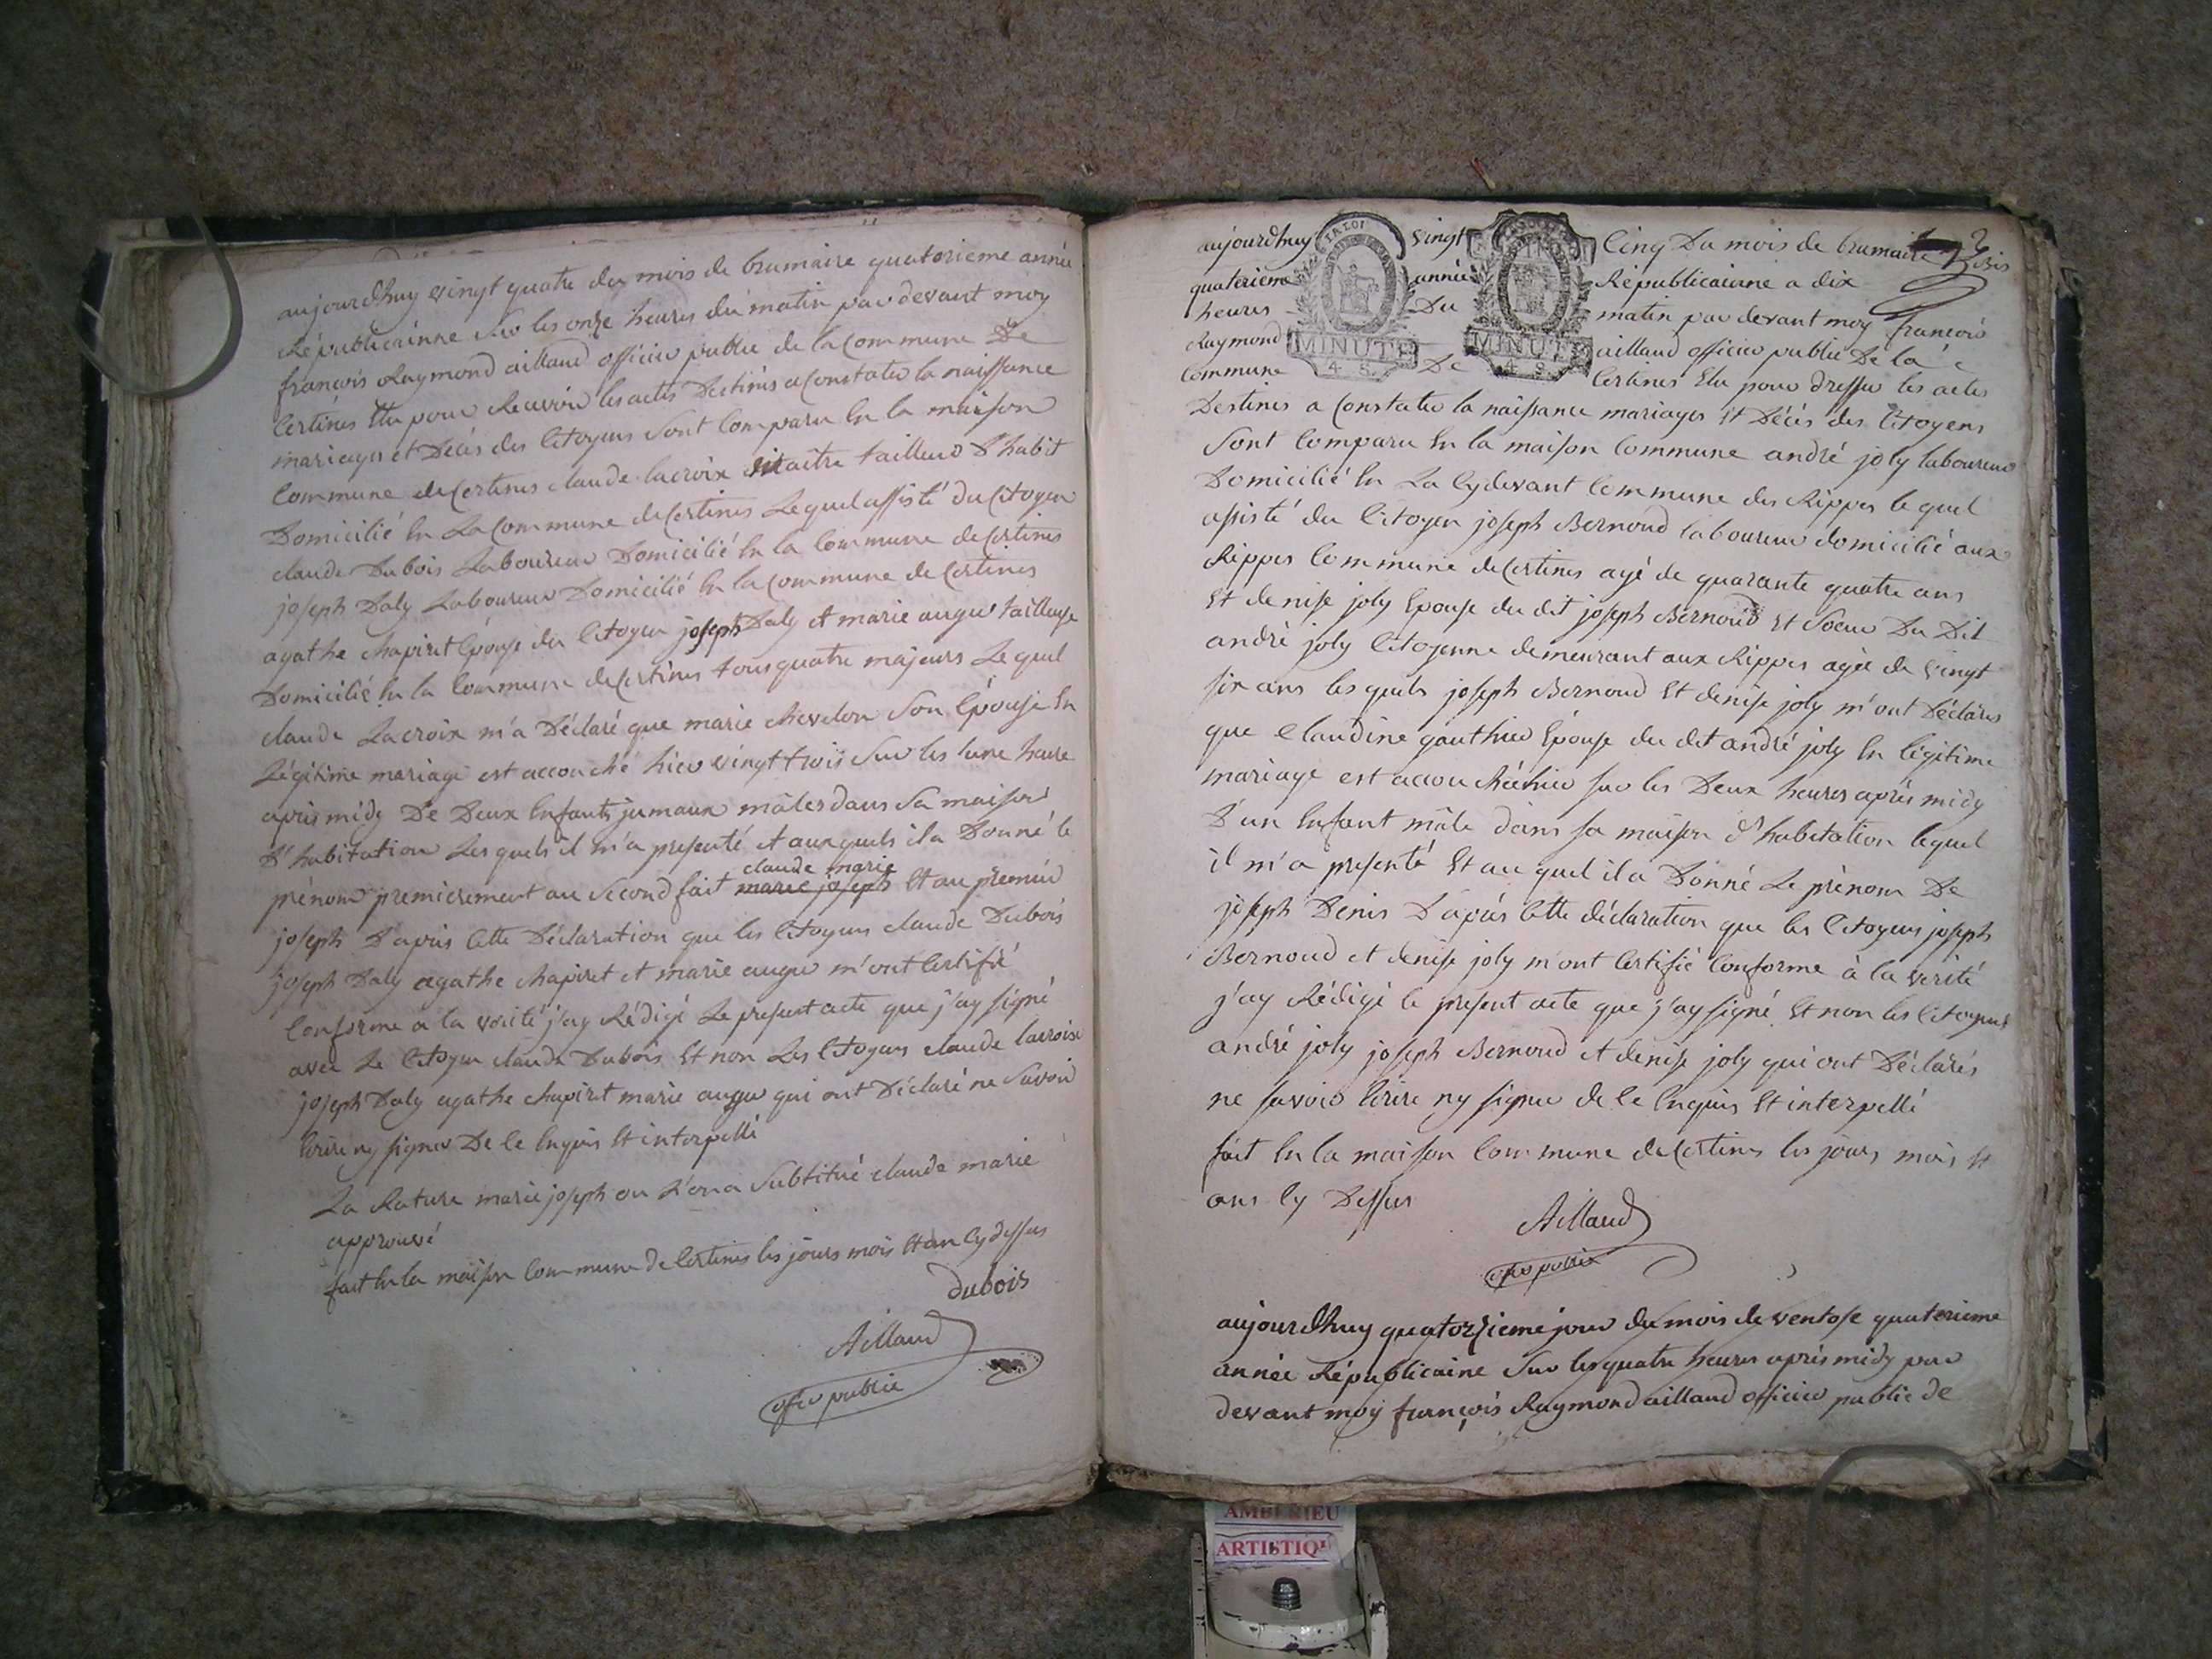 aujourdhuy vingt quatre du mois de brumaire quatorieme année
Républicainne sur les onze heures du matin par devant moy
françois Raymond aillaud officier public de la Commune De
Certines Elu pour Recevoir les actes Destinés a Constater la naissance
mariages et Décés des Citoyens Sont Comparu En la maison
Commune de Certines claude lacroix maître tailleur D'habit
Domicilié En La Commune de Certines Lequel assisté du Citoyen
claude Dubois Laboureur Domicilié En la Commune de Certines
joseph Daly Laboureur Domicilié En la Commune de Certines
agathe chapiret Epouse du Citoyen joseph Daly et marie auger tailleuse
Domicilié En la Commune de Certines tous quatre majeurs Le quel
claude Lacroix m'a Déclaré que marie chevelon Son Epouse En
Légitime mariage est accouché hier vingt trois Sur les lune heure
aprés midy De Deux Enfants jumaux mâles dans Sa maison
D'habitation Les quels il m'a presenté et aux quels il a Donné le
prénom premierement au Second fait marie joseph claude marie Et au premier
joseph D'aprés Cette Déclaration que les Citoyens claude Dubois
joseph Daly agathe chapiret et marie auger m'ont Certifié
Conforme a la verité j'ay Rédigé Le present acte que j'ay signé
avec Le Citoyen claude Dubois Et non Les Citoyens claude lacroix
joseph Daly agathe chapiret marie auger qui ont Déclaré ne Savoir
Ecrire ny signer De Ce Enquis Et interpellé
La Rature marie joseph ou L'on a Subtitué claude marie
approuvé
fait En la maison Commune de Certines les jours mois Et an Cy dessus
dubois
Aillaud
ofer public
aujourdhuy vingt Cinq Du mois de brumaire
quaterieme année Républicainne a dix
heures Du matin par devant moy françois
Raymond aillaud officier public De la
Commune De Certines Elu pour dresser les actes
LA LOI
MINUTE
4 S.
MINUTE
4 S.
Destinés a Constater la naissance mariages Et Décés des Citoyens
Sont Comparu En la maison Commune andré joly laboureur
Domicilié En La Cydevant Commune des Rippes le quel
assisté du Citoyen joseph Bernoud laboureur domicilié aux
Rippes Commune de Certines agé de quarante quatre ans
Et denise joly Epouse du dit joseph Bernoud Et Soeur Du Dit
andré joly Citoyenne demeurant aux Rippes agée de vingt
six ans les quels joseph Bernoud Et denise joly m'ont Déclarés
que Claudine gauthier Epouse du dit andré joly En légitime
mariage est accouchée hier sur les Deux heures aprés midy
D'un Enfant mâle dans sa maison d'habitation lequel
il m'a presenté Et au quel il a Donné Le prénom De
joseph Denis D'aprés Cette déclaration que les Citoyens joseph
Bernoud et denise joly m'ont Certifié Conforme à la verité
j'ay Rédigé le present acte que j'ay signé Et non les Citoyens
andré joly joseph Bernoud et denise joly qui ont Déclarés
ne savoir Ecrire ny signer de Ce Enquis Et interpellé
fait En la maison Commune de Certines les jours mois Et
ans Cy Dessus
Aillaud
ofer public
aujourdhuy quatorzieme jour du mois de ventose quaterieme
année Républicaine Sur les quatre heures aprés midy par
devant moy françois Raymond aillaud officier public de
AMBERIEU
ARTISTIQ